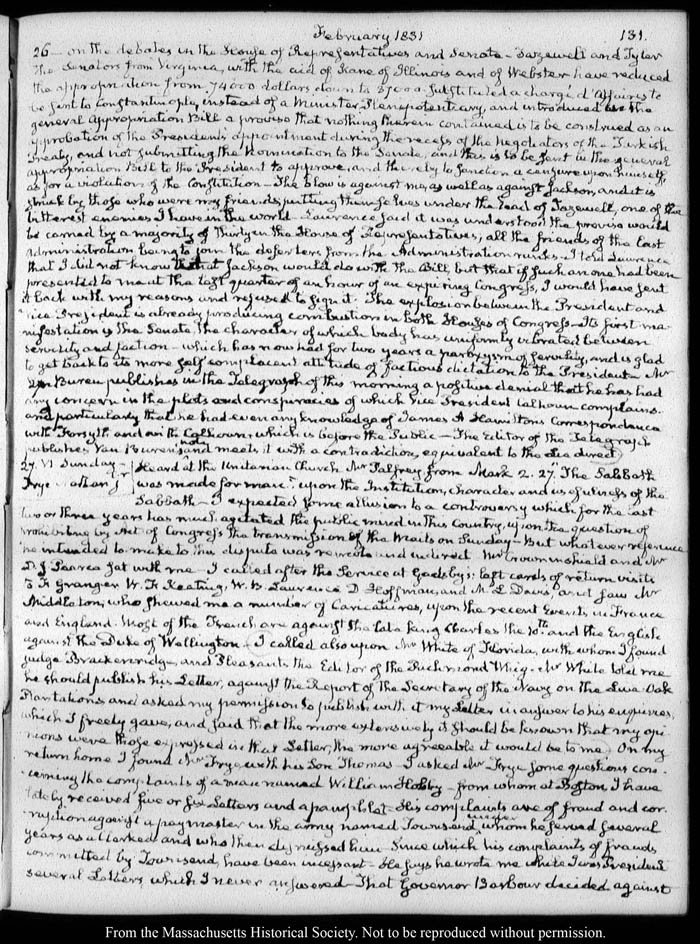 February 1831
131.
26 — on the debates in the House of Representatives and Senate — Tazewell and Tyler
the Senators from Virginia, with the aid of Kane of Illinois and of Webster have reduced
the appropriation from 74000 dollars down to substituted a chargé d'Affaires to
be sent to Constantinople, instead of a Minister Plenipotentiary, and introduced in the
general Appropriation Bill a proviso that nothing therein contained is to be construed as an
approbation of the President's appointment during the recess of the negotiators of the Turkish
Treaty, and not submitting the Nomination to the Senate, and this is to be sent in the general
appropriation Bill to the President to approve, and thereby to sanction a censure upon himself
as for a violation of the Constitution — The blow is against me, as well as against Jackson, and it is
struck by those who were my friends, putting themselves under the lead of Tazewell, one of the
bitterest enemies I have in the world — Lawrence said it was understood the proviso would
be carried by a majority of thirty in the House of Representatives; all the friends of the last
Administration being to join the deserters from the Administration ranks — I told Lawrence
that I did not know what Jackson would do with the Bill, but that if such an one had been
presented to me at the last quarter of an hour of an expiring Congress, I would have sent
it back with my reasons and refused to sign it. The explosion between the President and
Vice President is already producing combustion in both Houses of Congress — Its first ma-
nifestation is the Senate, the character of which body has uniformly vibrated between
servility and faction — which has now had for two years a paroxysm of servility, and is glad
to get back to its more self complacent attitude of factious dictation to the President — Mr
Van Buren publishes in the Telegraph of this morning a positive denial that he has had
any concern in the plots and conspiracies of which Vice President Calhoun complains,
and particularly that he had even any knowledge of James A Hamilton's correspondence
with Forsyth and with Calhoun, which is before the Public — The Editor of the Telegraph
publishes Van Buren's note, and meets it with a contradiction, equivalent to the Lie direct
27. VI Sunday — Heard at the Unitarian Church Mr Palfrey, from Mark 2. 27. "The Sabbath
Frye Nathan J was made for man" upon the Institution, character and usefulness of the
Sabbath — I expected some allusion to a controversy which for the last
two or three years has much agitated the public mind in this Country, upon the question of
prohibiting by Act of Congress the transmission of the Mails on Sunday — But whatever reference
he intended to make to this dispute was remote and indirect Mr Crowninshield and Mr
D. J Pearce sat with me — I called after the Service at Gadsby's; left cards of return visits
to F. Granger W. H Keating, W. B. Lawrence D. Hoffman, and M. L Davis, and saw Mr
Middleton, who shewed me a number of Caricatures, upon the recent Events in France
and England. Most of the French are against the late king Charles the 10th and the English
against the Duke of Wellington — I called also upon Mr White of Florida, with whom I found
Judge Brackenridge, and Pleasants the Editor of the Richmond Whig. Mr White told me
he should publish his Letter, against the Report of the Secretary of the Navy on the Live Oak
Plantations and asked my permission to publish with it my Letter in answer to his enquiries,
which I freely gave, and said that the more extensively it should be known that my opi-
nions were those expressed in that Letter, the more agreeable it would be to me. On my
return home I found Mr Frye with his Son Thomas — I asked Mr Frye some questions con-
cerning the complaints of a man named William Hobby — from whom at Boston I have
lately received five or six Letters and a pamphlet — His complaints are of fraud and cor-
ruption against a paymaster in the army named Townsend, under whom he served several
years as a Clerk and who then dismissed him Since which his complaints of frauds
committed by Townsend, have been incessant — He says he wrote me while I was President
several Letters which I never answered — That Governor Barbour decided against
From the Massachusetts Historical Society. Not to be reproduced without permission.